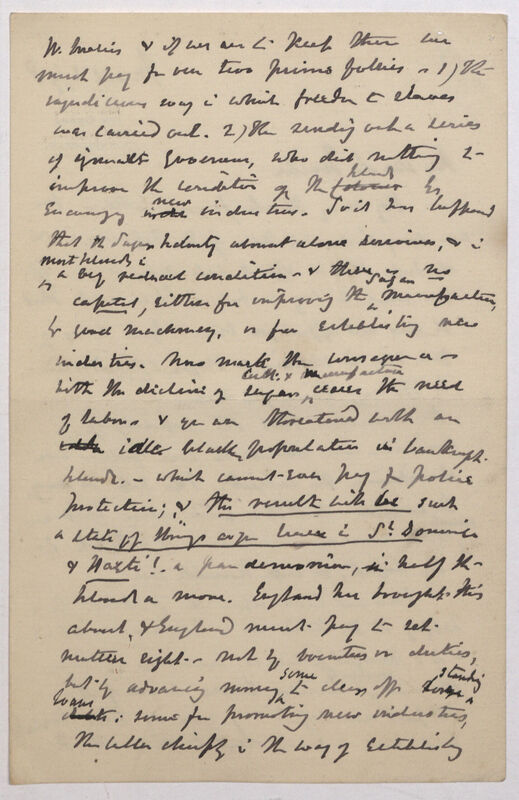 W. Indies & if we are to keep them we
must pay for our two prime follies - 1) the
injudicious way in which freedom to slaves
was carried out. 2) the sending out a series
of ignorant governors, who did nothing to
improve the condition of the islands by
encouraging new industries. So it has happened
that the Sugar Industry almost alone survives, & in
most islands in
a very reduced condition - & there is no
capital, either for improving the Sugar manufacture,
by good machinery, or for establishing new
industries. Now mark the consequence -
with the decline of sugar cult. & manufacture ceases the need
of labour & you are threatened with an
idle black population in bankrupt
islands. - which cannot even pay for police
protection; & the result will be such
a state of things as you have in St. Domingo
& Hayti! a pandemonium, in half the
islands or more. England has brought this
about, & England must pay to set
matters right - not by bounties or duties,
but by advancing money some to clear off standing
: some for promoting new industries,
the latter chiefly in the way of establishing